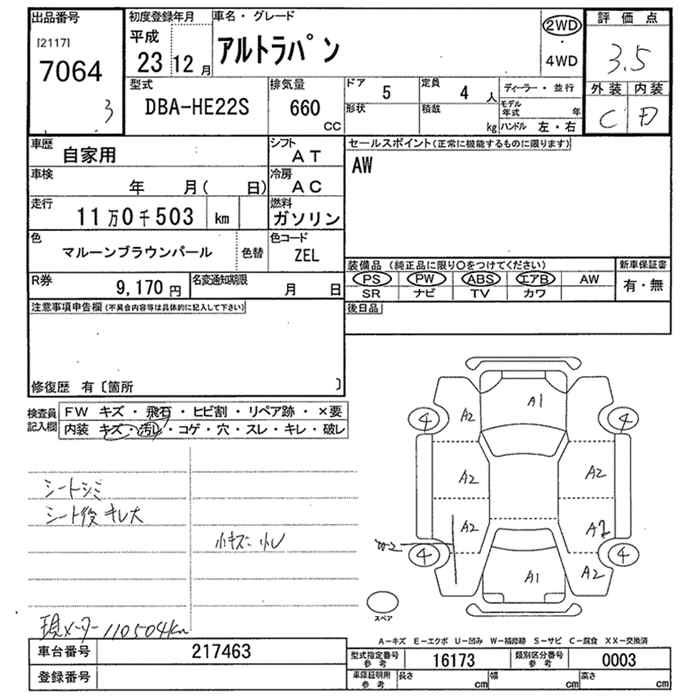 出品番号
[2117]
7064
3
初度登録年月
平成
23 12 月
車名・グレード
アルトラパン
2WD
・
4WD
評価点
3.5
外装 内装
C D
型式
DBA-HE22S
排気量
660 CC
ドア 5
形状
定員 4 人
積載 kg
ディーラー・並行
モデル年式 年
ハンドル 左・右
車歴 自家用
シフト AT
車検 年 月( 日)
冷房 AC
走行 11万0千503 km
燃料 ガソリン
色 マルーンブラウンパール
色替
色コード ZEL
R券 9,170 円
名変通知期限 月 日
セールスポイント(正常に機能するものに限ります)
AW
装備品 (純正品に限り○をつけてください)
PS PW ABS エアB AW
SR ナビ TV カワ
新車保証書
有・無
後日品
注意事項申告欄(不具合内容等は具体的に記入して下さい)
修復歴 有〔箇所 〕
検査員記入欄
FW キズ・飛石・ヒビ割・リペア跡・×要
内装 キズ・汚れ・コゲ・穴・スレ・キレ・破レ
シートシミ
シート後キレ大
小キズ 小U
現メーター110504km
A1
A2
4
4
A2
A2
A2
A2
W2
4
4
A2
A2
A1
スペア
A-キズ E-エクボ U-凹み W-補修跡 S-サビ C-腐食 XX-交換済
車台番号 217463
登録番号
型式指定番号参考 16173
類別区分番号参考 0003
車庫証明用参考 長さ cm 幅 cm 高さ cm